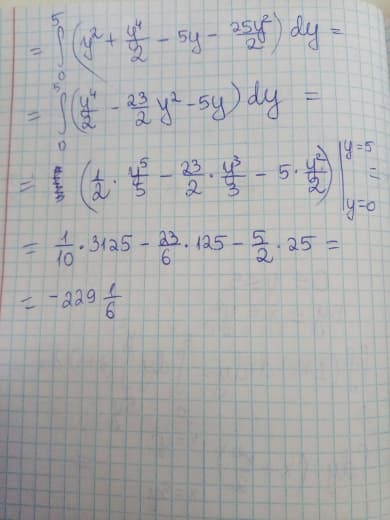 = ∫₀⁵ (y² + y⁴/2 - 5y - 25y²/2) dy =
= ∫₀⁵ (y⁴/2 - 23/2 y² - 5y) dy =
= (1/2 · y⁵/5 - 23/2 · y³/3 - 5 · y²/2) |y=5 y=0 =
= 1/10 · 3125 - 23/6 · 125 - 5/2 · 25 =
= -229 1/6